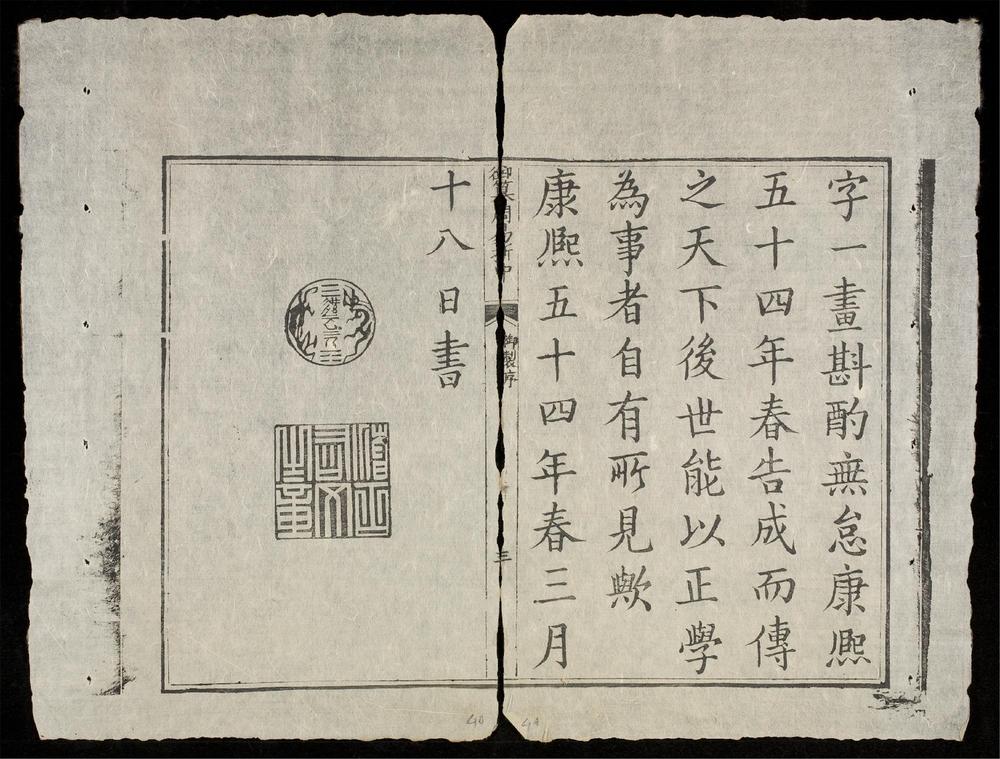 字一畫斟酌無怠康熈
五十四年春告成而傳
之天下後世能以正學
為事者自有所見歟
康熈五十四年春三月
御纂周易折中
御製序
三
十八日書